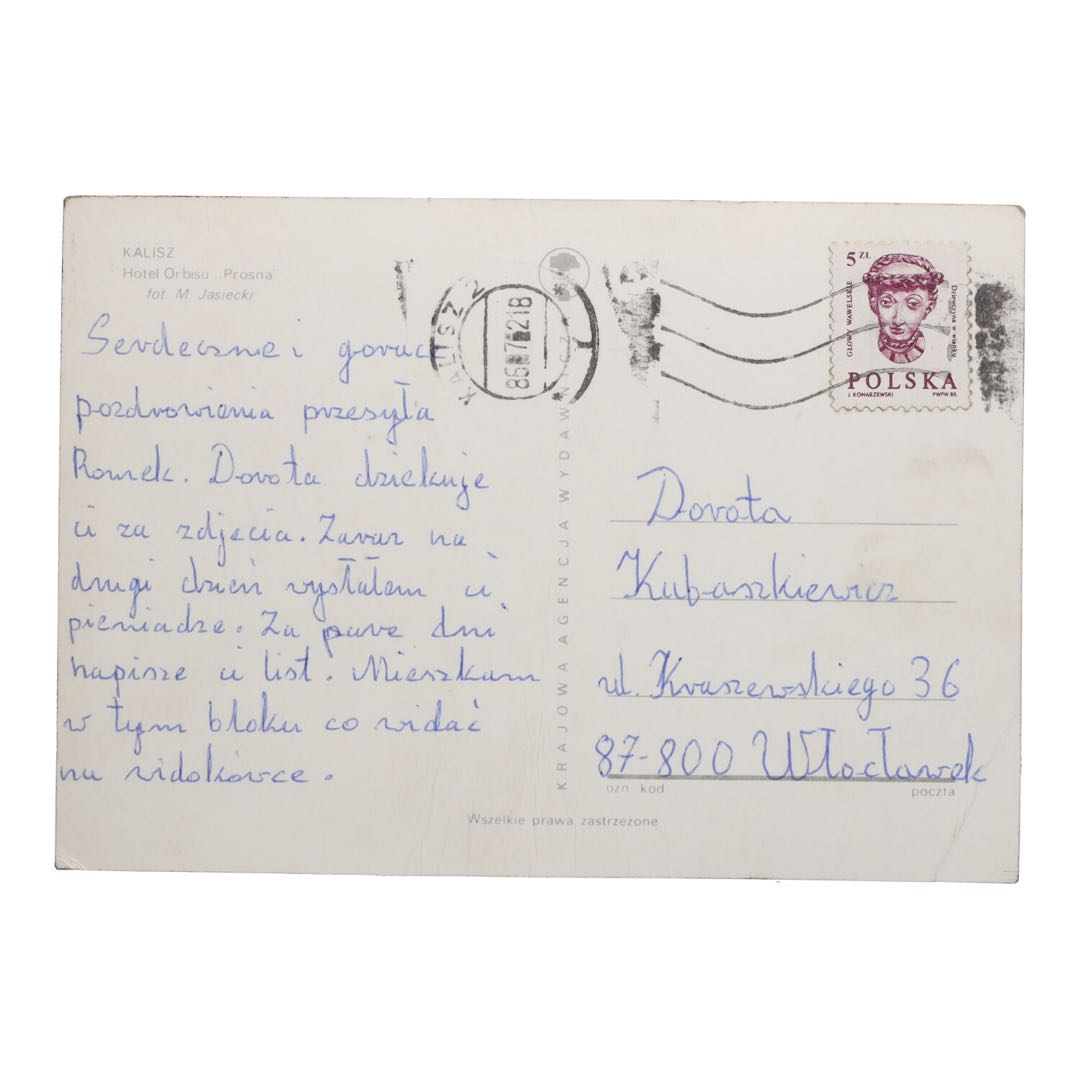 KALISZ
Hotel Orbisu „Prosna"
fot. M. Jasiecki
Serdeczne i gorące
pozdrowienia przesyła
Romek. Dorota dziekuje
ci za zdjecia. Zaraz na
drugi dzień wysłałem ci
pieniadze. Za pare dni
napisze ci list. Mieszkam
w tym bloku co widać
na widokówce.
KRAJOWA AGENCJA WYDAWNICZA
Wszelkie prawa zastrzeżone
KALISZ 2
5 ZŁ
GŁOWY WAWELSKIE
Dziewczyna w wianku
POLSKA
J. KONARZEWSKI PWPW 85
Dorota
Kubaszkiewicz
ul. Kraszewskiego 36
87-800 Włocławek
ozn. kod poczta